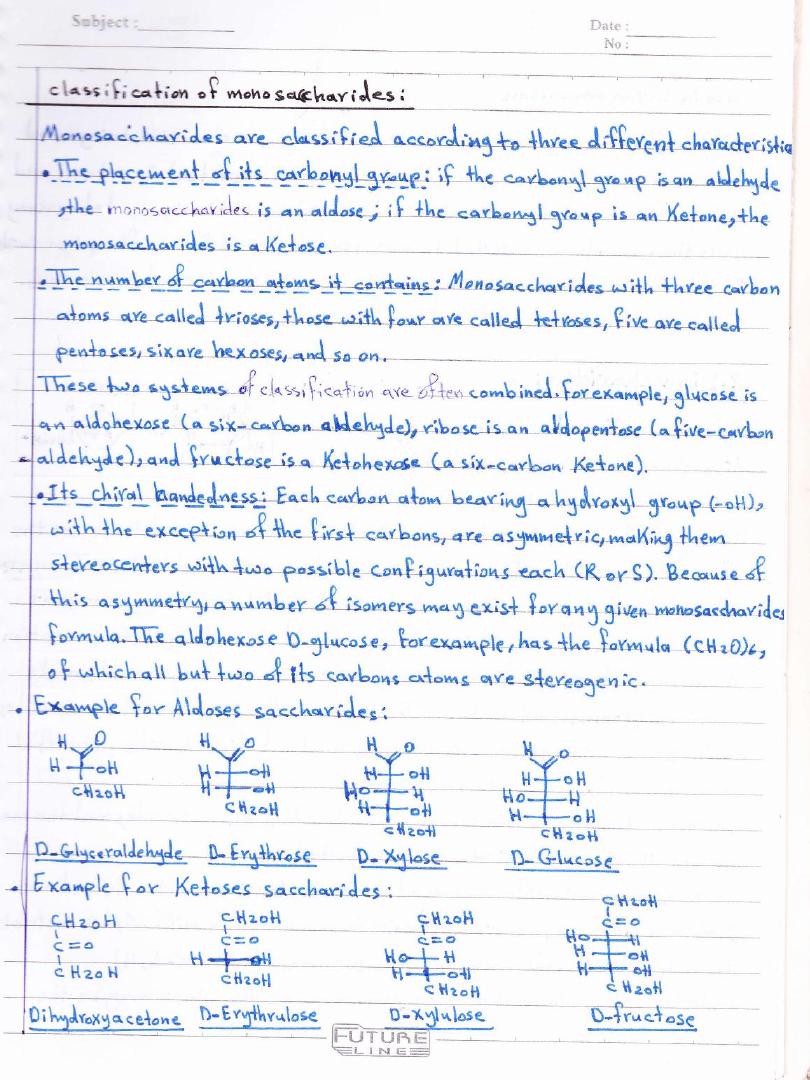 Subject :
Date :
No :
classification of monosaccharides:
Monosaccharides are classified according to three different characteristic
• The placement of its carbonyl group: if the carbonyl group is an aldehyde
,the monosaccharides is an aldose; if the carbonyl group is an Ketone, the
monosaccharides is a Ketose.
• The number of carbon atoms it contains: Monosaccharides with three carbon
atoms are called trioses, those with four are called tetroses, five are called
pentoses, six are hexoses, and so on.
These two systems of classification are often combined. For example, glucose is
an aldohexose (a six-carbon aldehyde), ribose is an aldopentose (a five-carbon
aldehyde), and fructose is a Ketohexose (a six-carbon Ketone).
• Its chiral handedness: Each carbon atom bearing a hydroxyl group (-OH),
with the exception of the first carbons, are asymmetric, making them
stereocenters with two possible configurations each (R or S). Because of
this asymmetry, a number of isomers may exist for any given monosaccharides
formula. The aldohexose D-glucose, for example, has the formula (CH2O)6,
of which all but two of its carbons atoms are stereogenic.
• Example for Aldoses saccharides:
H O H O H O H O
H OH H OH H OH H OH
CH2OH H OH HO H HO H
CH2OH H OH H OH
CH2OH CH2OH
D-Glyceraldehyde D-Erythrose D-Xylose D-Glucose
• Example for Ketoses saccharides:
CH2OH CH2OH CH2OH CH2OH
C=O C=O C=O C=O
CH2OH H OH HO H HO H
CH2OH H OH H OH
CH2OH H OH
CH2OH
Dihydroxyacetone D-Erythrulose D-Xylulose D-fructose
FUTURE
LINE